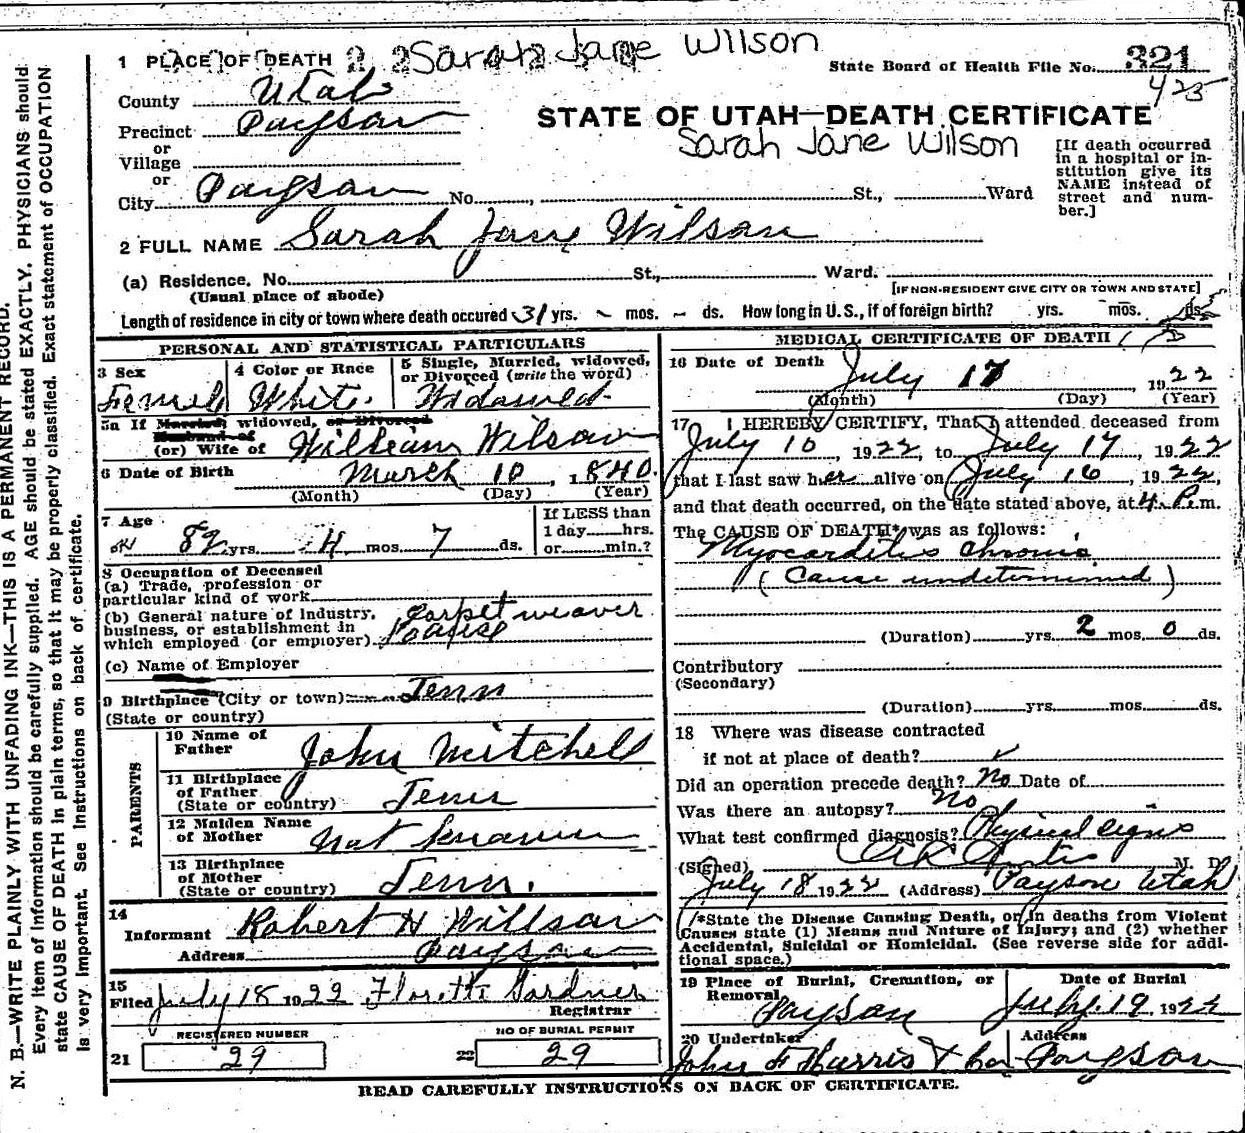 Sarah Jane Wilson
1 PLACE OF DEATH 2 2
State Board of Health File No. 321
425
County Utah
STATE OF UTAH—DEATH CERTIFICATE
Precinct Payson
Sarah Jane Wilson
or
Village
or
City Payson No. , St., Ward
[If death occurred
in a hospital or in-
stitution give its
NAME instead of
street and num-
ber.]
2 FULL NAME Sarah Jane Wilson
(a) Residence. No. St., Ward.
(Usual place of abode)
[IF NON-RESIDENT GIVE CITY OR TOWN AND STATE]
Length of residence in city or town where death occured 31 yrs. - mos. - ds. How long in U. S., if of foreign birth? yrs. mos. ds.
PERSONAL AND STATISTICAL PARTICULARS
3 Sex
4 Color or Race
5 Single, Married, widowed,
or Divorced (write the word)
Female White. Widowed
5a If Married, widowed, or Divorced
Husband of
(or) Wife of William Wilson
6 Date of Birth March 10, 1840.
(Month) (Day) (Year)
7 Age
82 yrs. 4 mos. 7 ds.
If LESS than
1 day hrs.
or min.?
8 Occupation of Deceased
(a) Trade, profession or
particular kind of work
(b) General nature of industry,
business, or establishment in
which employed (or employer)
carpet weaver
(c) Name of Employer
9 Birthplace (City or town) Tenn
(State or country)
PARENTS
10 Name of
Father John Mitchell
11 Birthplace
of Father
(State or country) Tenn
12 Maiden Name
of Mother Not known
13 Birthplace
of Mother
(State or country) Tenn.
14
Informant Robert H Willson
Address Payson
15
Filed July 18 1922 Floretti Gardner
Registrar
REGISTERED NUMBER
21 29
NO OF BURIAL PERMIT
22 29
MEDICAL CERTIFICATE OF DEATH
16 Date of Death July 17, 1922
(Month) (Day) (Year)
17 I HEREBY CERTIFY, That I attended deceased from
July 10, 1922, to July 17, 1922
that I last saw her alive on July 16, 1922,
and that death occurred, on the date stated above, at 4 P. m.
The CAUSE OF DEATH* was as follows:
Myocarditis chronic
(Cause undetermined)
(Duration) yrs. 2 mos. 0 ds.
Contributory
(Secondary)
(Duration) yrs. mos. ds.
18 Where was disease contracted
if not at place of death?
Did an operation precede death? No Date of
Was there an autopsy? No
What test confirmed diagnosis? Physical signs
(Signed) M. D.
July 18 1922 (Address) Payson Utah
*State the Disease Causing Death, or in deaths from Violent
Causes state (1) Means and Nature of Injury; and (2) whether
Accidental, Suicidal or Homicidal. (See reverse side for addi-
tional space.)
19 Place of Burial, Cremation, or
Removal Payson
Date of Burial
July 19, 1922
20 Undertaker
John F Harris & Co
Address
Payson
READ CAREFULLY INSTRUCTIONS ON BACK OF CERTIFICATE.
N. B.—WRITE PLAINLY WITH UNFADING INK—THIS IS A PERMANENT RECORD.
Every item of information should be carefully supplied. AGE should be stated EXACTLY. PHYSICIANS should
state CAUSE OF DEATH in plain terms, so that it may be properly classified. Exact statement of OCCUPATION
is very important. See Instructions on back of certificate.